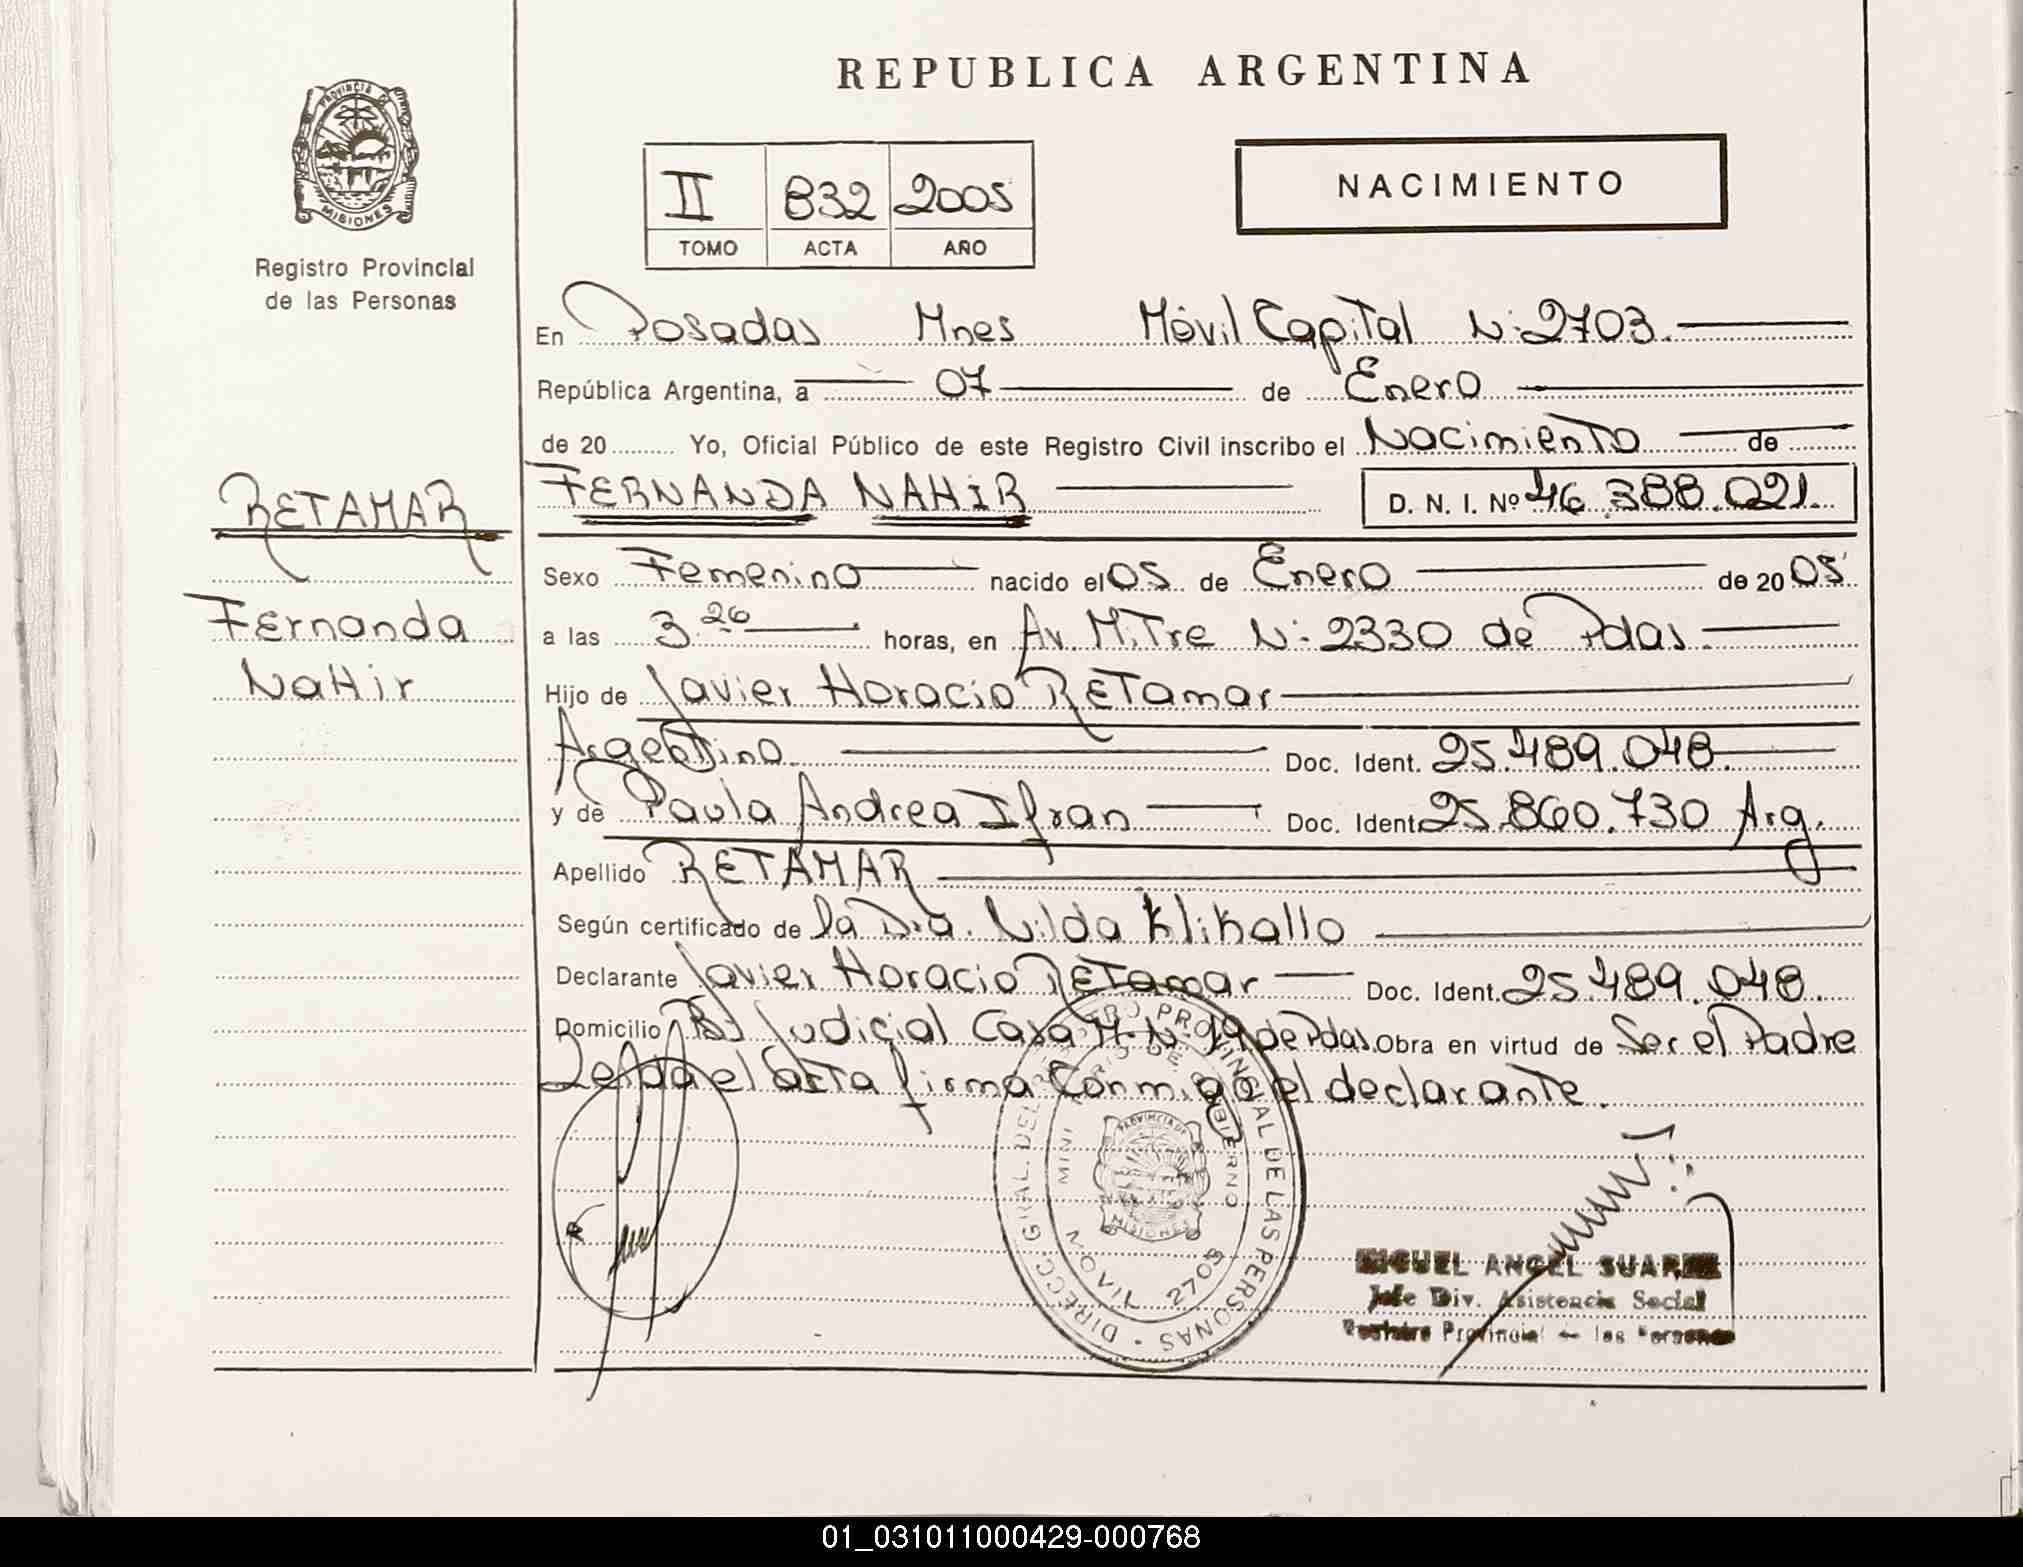 REPUBLICA ARGENTINA
PROVINCIA DE
MISIONES
Registro Provincial
de las Personas
II 832 2005
TOMO ACTA AÑO
NACIMIENTO
En Posadas Mnes Móvil Capital N: 2703.
República Argentina, a 07 de Enero
de 20 Yo, Oficial Público de este Registro Civil inscribo el Nacimiento de
RETAMAR
FERNANDA NAHIR D. N. I. Nº 46.388.021.
Sexo Femenino nacido el 05 de Enero de 20 05
Fernanda
a las 3 26 horas, en Av. Mitre N: 2330 de Pdas.
Nahir
Hijo de Javier Horacio Retamar
Argentino. Doc. Ident. 25.489.048.
y de Paula Andrea Ifran Doc. Ident. 25.860.730 Arg.
Apellido RETAMAR
Según certificado de la Dra. Nilda Klikallo
Declarante Javier Horacio Retamar Doc. Ident. 25.489.048.
Domicilio Bº Judicial Casa M. N: de Pdas. Obra en virtud de Ser el Padre
Leida el acta firma Conmigo el declarante.
DIRECC. GRAL. DEL REGISTRO PROVINCIAL DE LAS PERSONAS
MINISTERIO DE GOBIERNO
PROVINCIA DE
MISIONES
MOVIL 2703
MIGUEL ANGEL SUAREZ
Jefe Div. Asistencia Social
Registro Provincial de las Personas
01_031011000429-000768